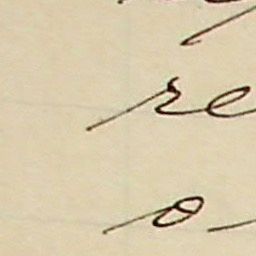 re
o